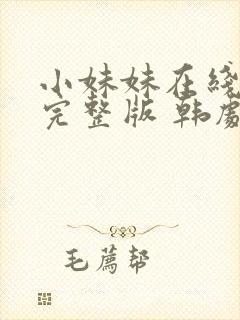 小妹妹在线
完整版 韩剧
毛荐帮